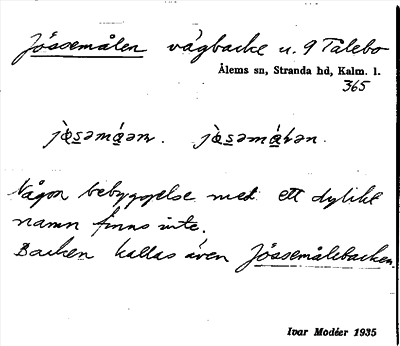 Jössemålen vägbacke u. 9 Talebo
Ålems sn, Stranda hd, Kalm. l.
365
Någon bebyggelse med ett dylikt
namn finns inte.
Backen kallas även Jössemålebacken.
Ivar Modéer 1935